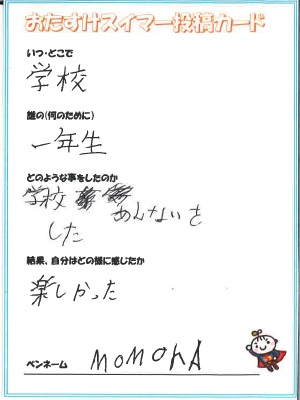 おたすけスイマー投稿カード
いつ・どこで
学校
誰の(何のために)
一年生
どのような事をしたのか
学校 あんないを
した
結果、自分はどの様に感じたか
楽しかった
ペンネーム MOMOKA